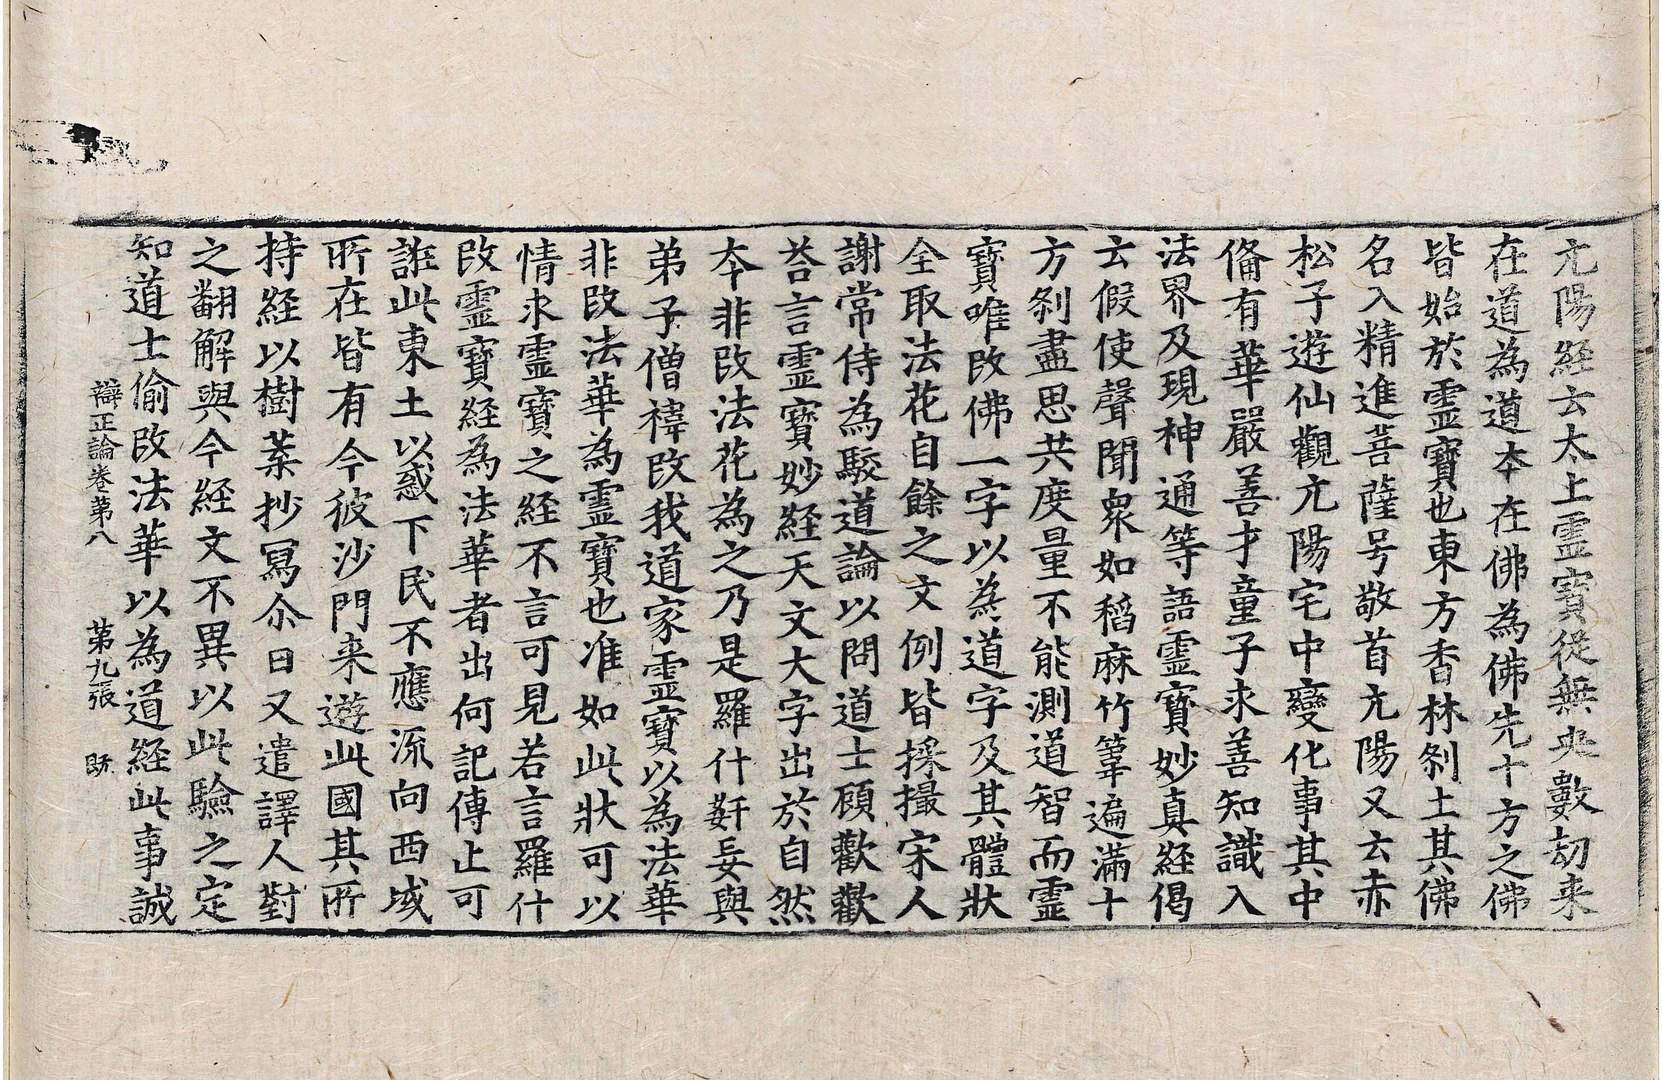 亢陽經云太上靈寶從無央數劫来
在道為道夲在佛為佛先十方之佛
皆始於靈寶也東方香林刹土其佛
名入精進菩薩号敬首亢陽又云赤
松子遊仙觀亢陽宅中變化事其中
俻有華嚴善才童子求善知識入
法界及現神通等語靈寶妙真經偈
云假使聲聞衆如稻麻竹䇹遍滿十
方刹盡思共度量不能測道智而靈
寶唯改佛一字以為道字及其體狀
全取法花自餘之文例皆採撮宋人
謝常侍為駮道論以問道士顧歡歡
荅言靈寶妙經天文大字出於自然
夲非改法花為之乃是羅什姧妄與
弟子僧禕改我道家靈寶以為法華
非改法華為靈寶也准如此狀可以
情求靈寶之經不言可見若言羅什
改靈寶經為法華者出何記傳止可
誑此東土以惑下民不應流向西域
所在皆有今彼沙門来遊此國其所
持經以樹葉抄寫尒日又遣譯人對
之翻解與今經文不異以此驗之定
知道士偷改法華以為道經此事誠
辯正論卷第八　第九張